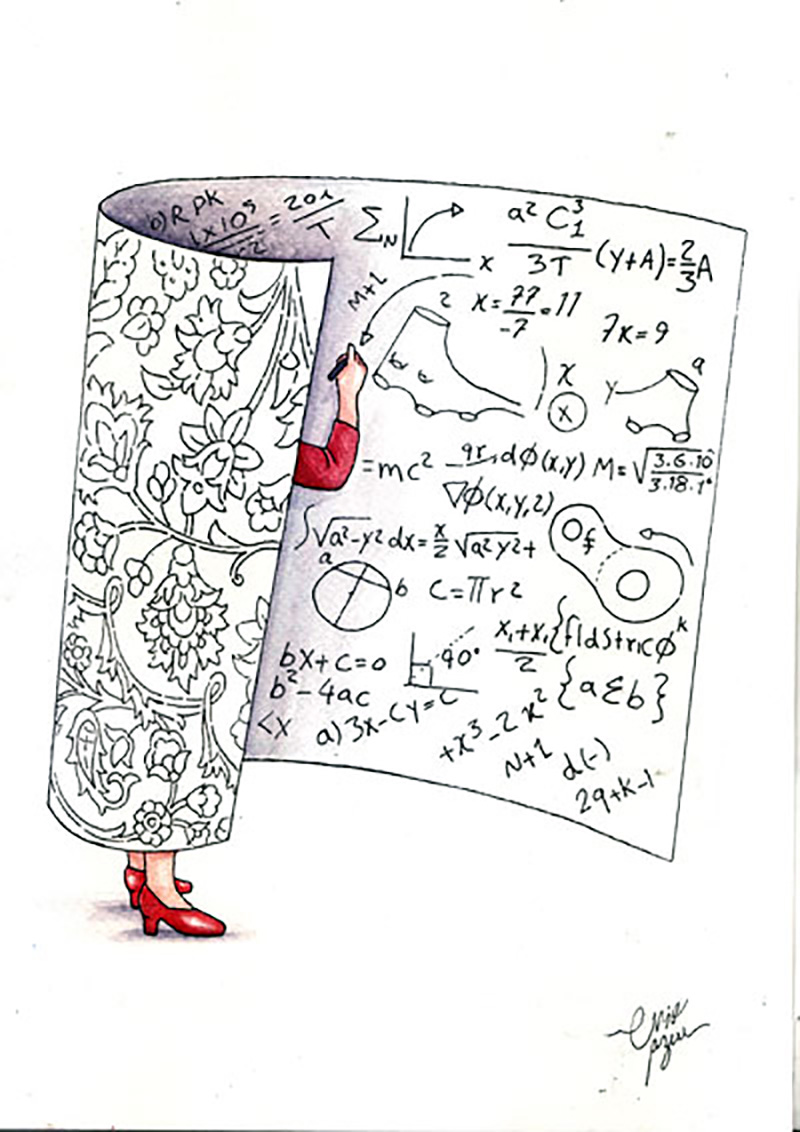 b) R PK
1x10⁵ = 20x/T
Σ_N
x
a² C₁³ / 3T (y+A) = 2/3 A
M+2
2
x = 77/-7 = 11
7x = 9
x
x
y
a
= mc²
dϕ(x,y)
∇ϕ(x,y,2)
M = √3.6.10/3.18.1°
∫√a²-y² dx = x/2 √a² y² +
f
a
b
C = πr²
bx+c=0
90°
x₁+x₁/2
{fldstricϕᵏ
b²-4ac
{aΣb}
<x
a) 3x-cy=c
+x³-2x²
N+1
d(-)
29+k-1